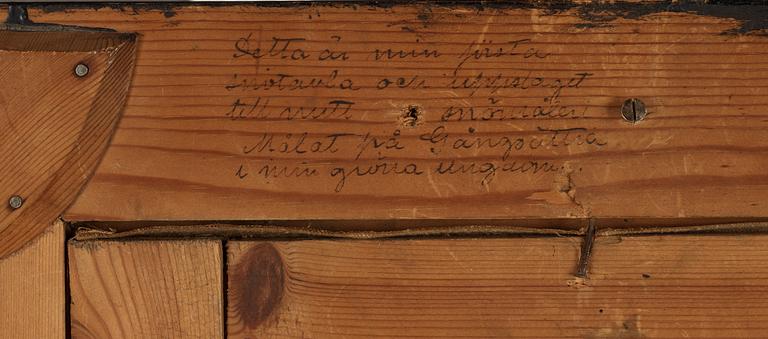 Detta är min första
snötavla och uppslaget
till mitt snömåleri
Målat på Gångsättra
i min gröna ungdom.